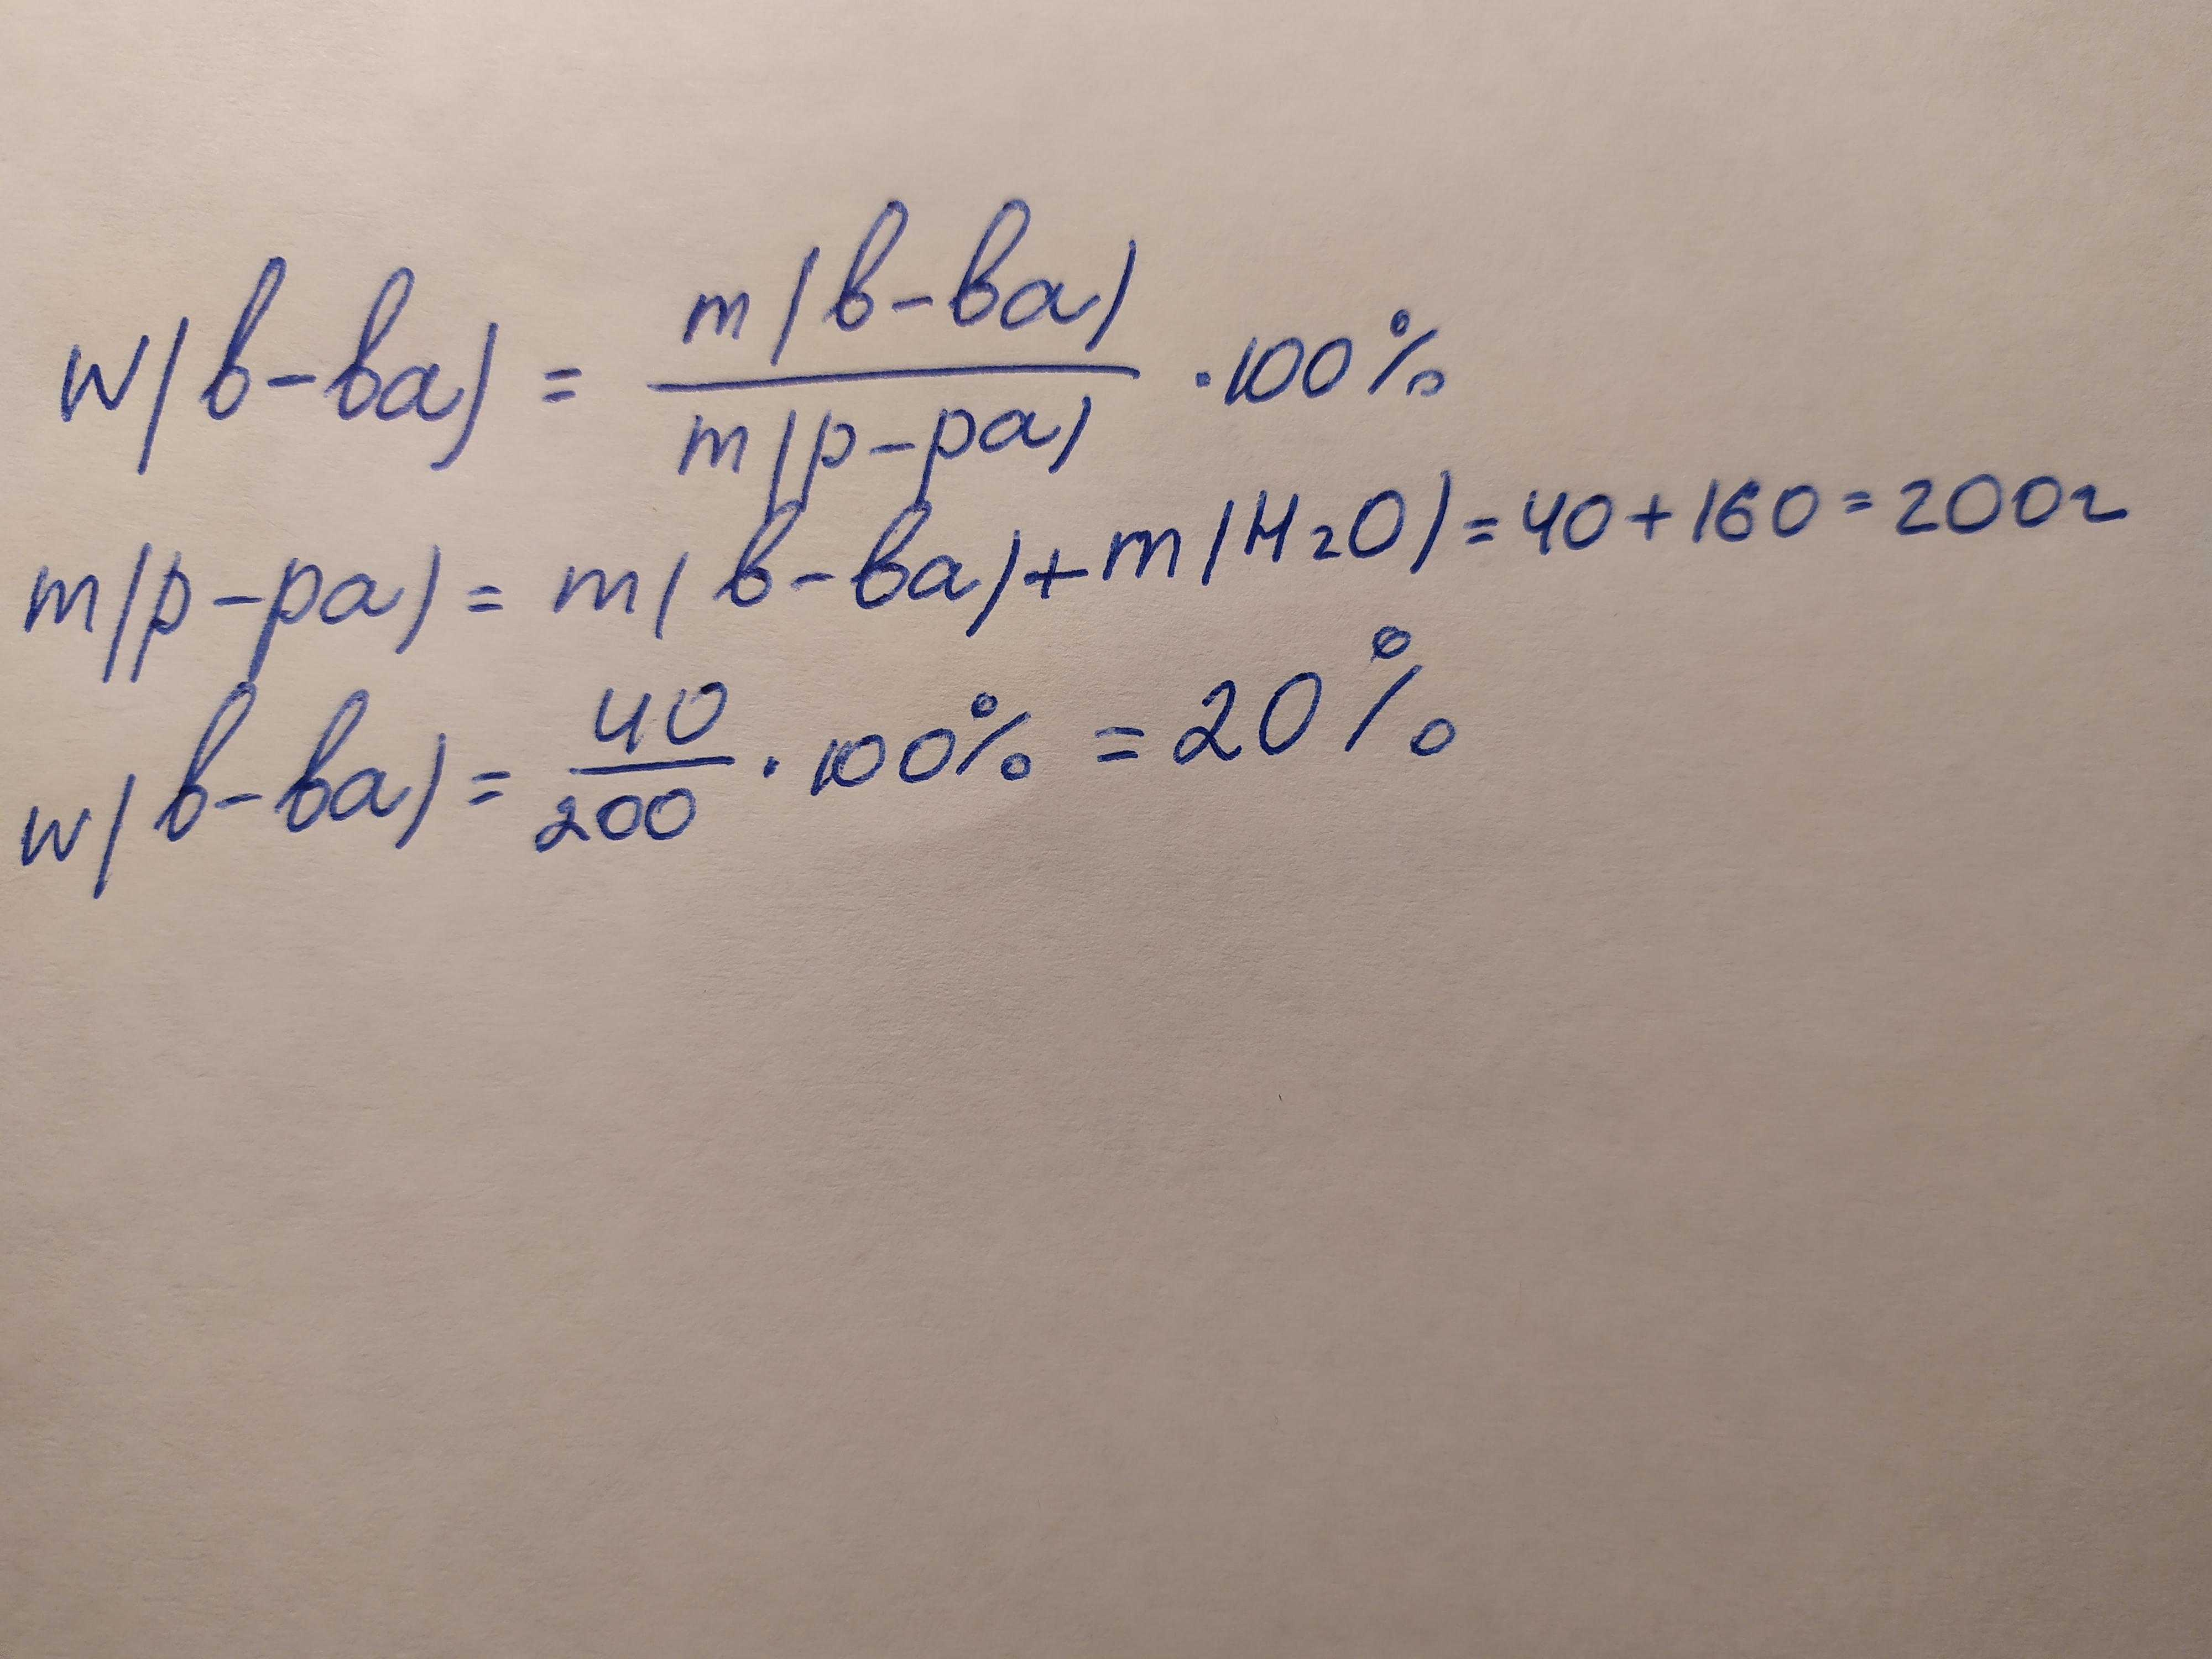 w(в-ва) = m(в-ва)/m(р-ра) · 100%
m(р-ра) = m(в-ва) + m(H₂O) = 40 + 160 = 200г
w(в-ва) = 40/200 · 100% = 20%